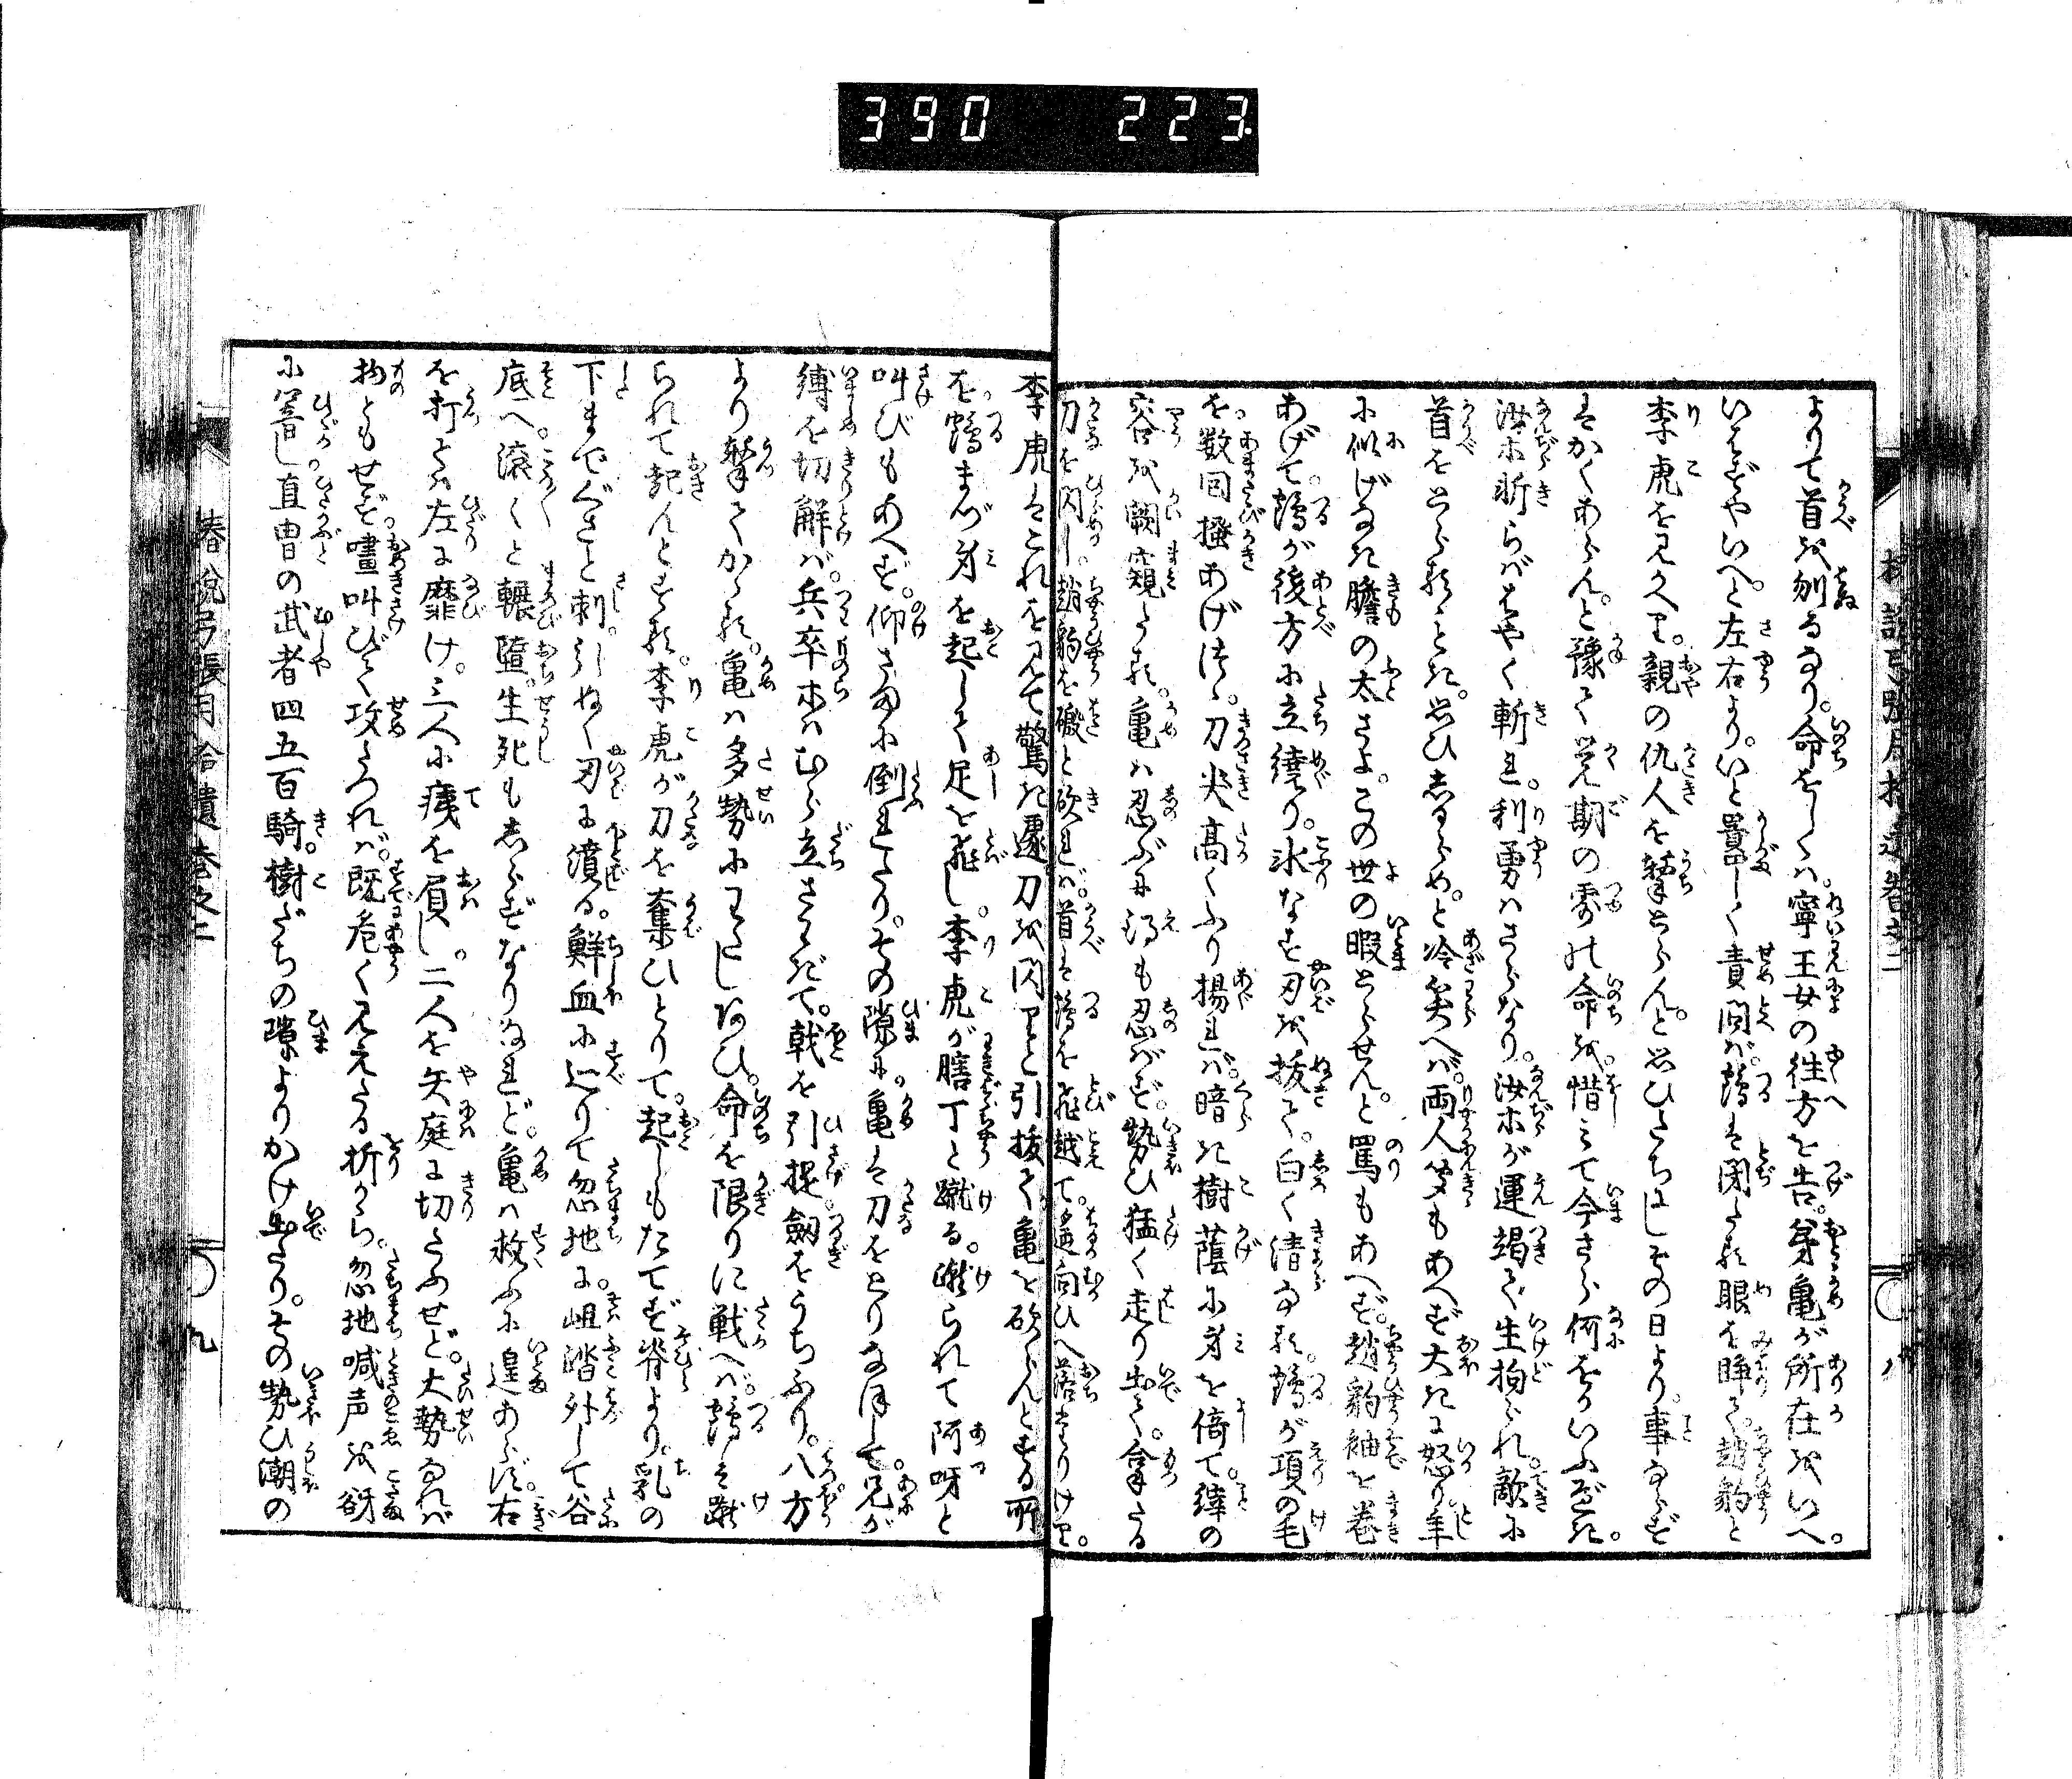 390 223
よりて首を刎るなり。命をしくは。寧王女の往方を告。弟亀が所在をいへ。
いはずやいへと左右より。いと囂しく責問ば。鶴は閉たる眼を睜て。趙豹と
李虎を見かへり。親の仇人を撃とらん。と思ひたちにしその日より。事ならず
はかくあらん。と豫て覚期の露の命を。惜みて今さら何をかいふべき。
汝等斫らばはやく斬れ。利勇はさらなり。汝等が運竭て生拘られ。敵に
首をとらるゝとき。思ひしるらめ。と冷笑へば。両人笑もあへず大きに怒り年
に似げなき膽の太さよ。この世の暇とらせん。と罵もあへず。趙豹袖を巻
あげて。鶴が後方に立繞り。氷なす刃を抜て。白く清なる。鶴が項の毛
を数回掻あげつゝ。刀尖高くふり揚れば。暗き樹蔭に身を倚て。縡の
容を闚窺たる。亀は忍ぶに得も忍ばず。勢ひ猛く走り出て。拿たる
刀を閃し。趙豹を礑と砍れば。首は鶴を飛越て。遙向ひへ落たりけり。
李虎はこれを見て驚き遽。刀を閃りと引抜て亀を砍らんとする所
を。鶴まづ身を起して足を飛し。李虎が膳丁と蹴る。蹴られて阿呀と
叫びもあへず。仰さまに倒れたり。その隙に。亀は刀をとりなほして。兄が
縛を切解ば。兵卒等はむら立さわぎて。戟を引提。劔をうちふり。八方
より撃てかゝる。亀は多勢にわたしあひ。命を限りに戦へば。鶴は蹴
られて起んとする。李虎が刀を奪ひとりて。起しもたてず脊より。乳の
下まで。ぐさと刺。引ぬく刃に濆る。鮮血に辷りて忽地に。岨踏外して谷
底へ。滚々と輾墮。生死もしらずなりなれど。亀は救ふに遑あらず。右
を打とは左に靡け。三人に痍を負し。二人を矢庭に切たふせど。大勢なれば
物ともせず。嚍叫びて攻たつれば。既危く見えたる折から。忽地喊声を谺
に答し直冑の武者四五百騎。樹だちの隙よりかけ出たり。その勢ひ潮の
椿説弓張月拾遺巻之二
九